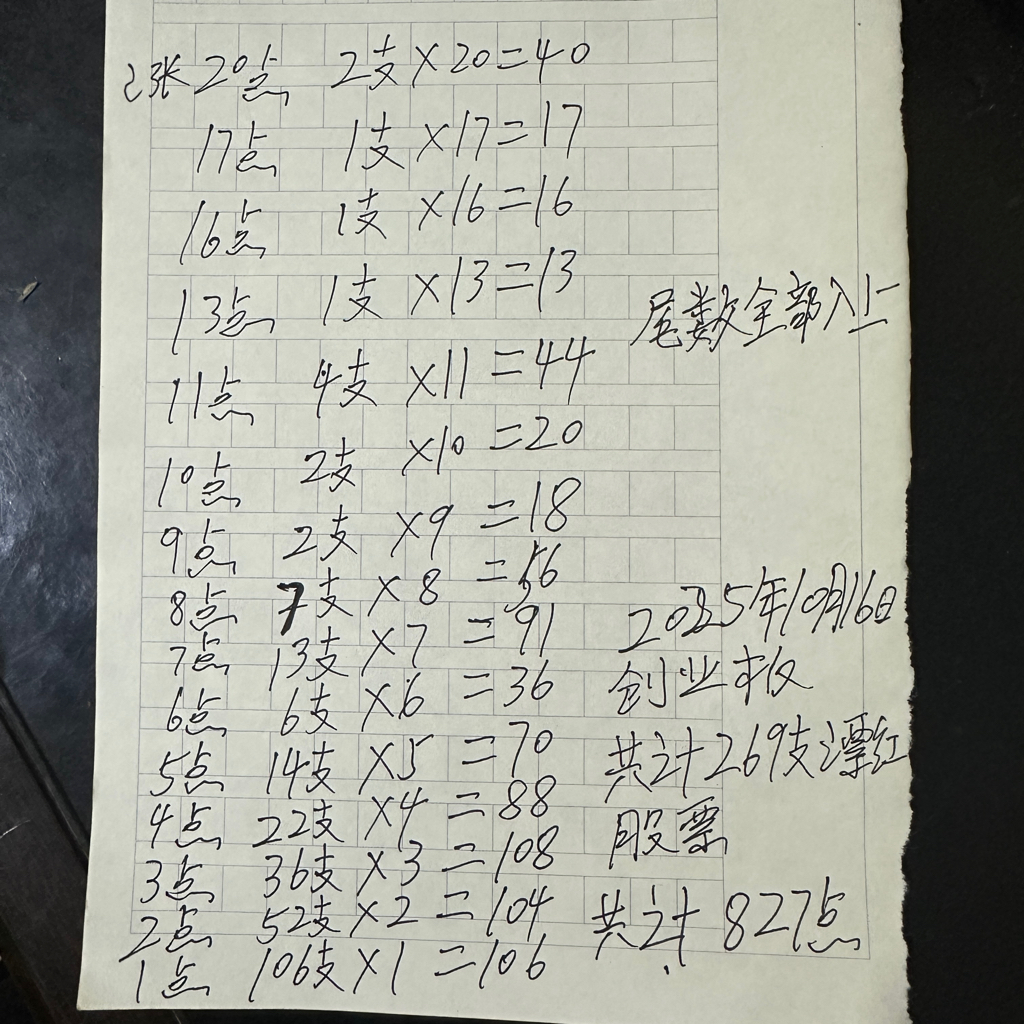 涨20点 2支×20=40
17点 1支×17=17
16点 1支×16=16
13点 1支×13=13
尾数全部入上
11点 4支×11=44
10点 2支×10=20
9点 2支×9=18
8点 7支×8=56
7点 13支×7=91
6点 6支×6=36
5点 14支×5=70
4点 22支×4=88
3点 36支×3=108
2点 52支×2=104
1点 106支×1=106
2025年10月16日
创业板
共计269支漂红
股票
共计827点